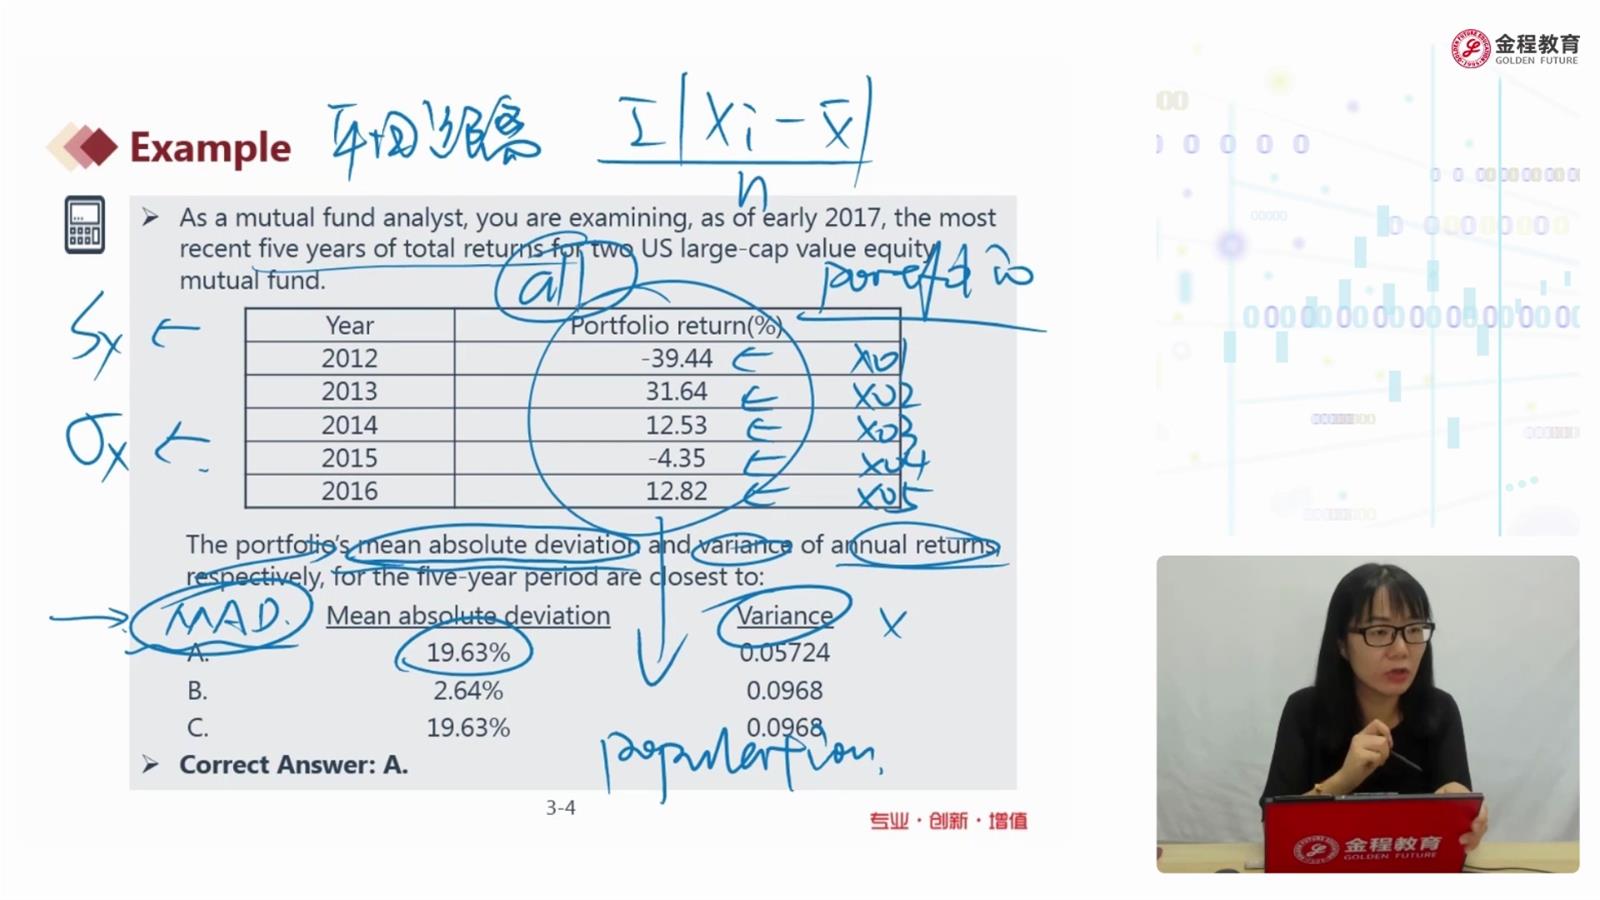 金程教育
GOLDEN FUTURE
Example
Σ|Xi - x̄|
n
As a mutual fund analyst, you are examining, as of early 2017, the most
recent five years of total returns for two US large-cap value equity
mutual fund.
all
Sx ←
σx ←
Year Portfolio return(%)
2012 -39.44 ← X01
2013 31.64 ← X02
2014 12.53 ← X03
2015 -4.35 ← X04
2016 12.82 ← X05
The portfolio's mean absolute deviation and variance of annual returns,
respectively, for the five-year period are closest to:
MAD. Mean absolute deviation Variance X
A. 19.63% 0.05724
B. 2.64% 0.0968
C. 19.63% 0.0968
Correct Answer: A.
3-4
专业·创新·增值
金程教育
GOLDEN FUTURE